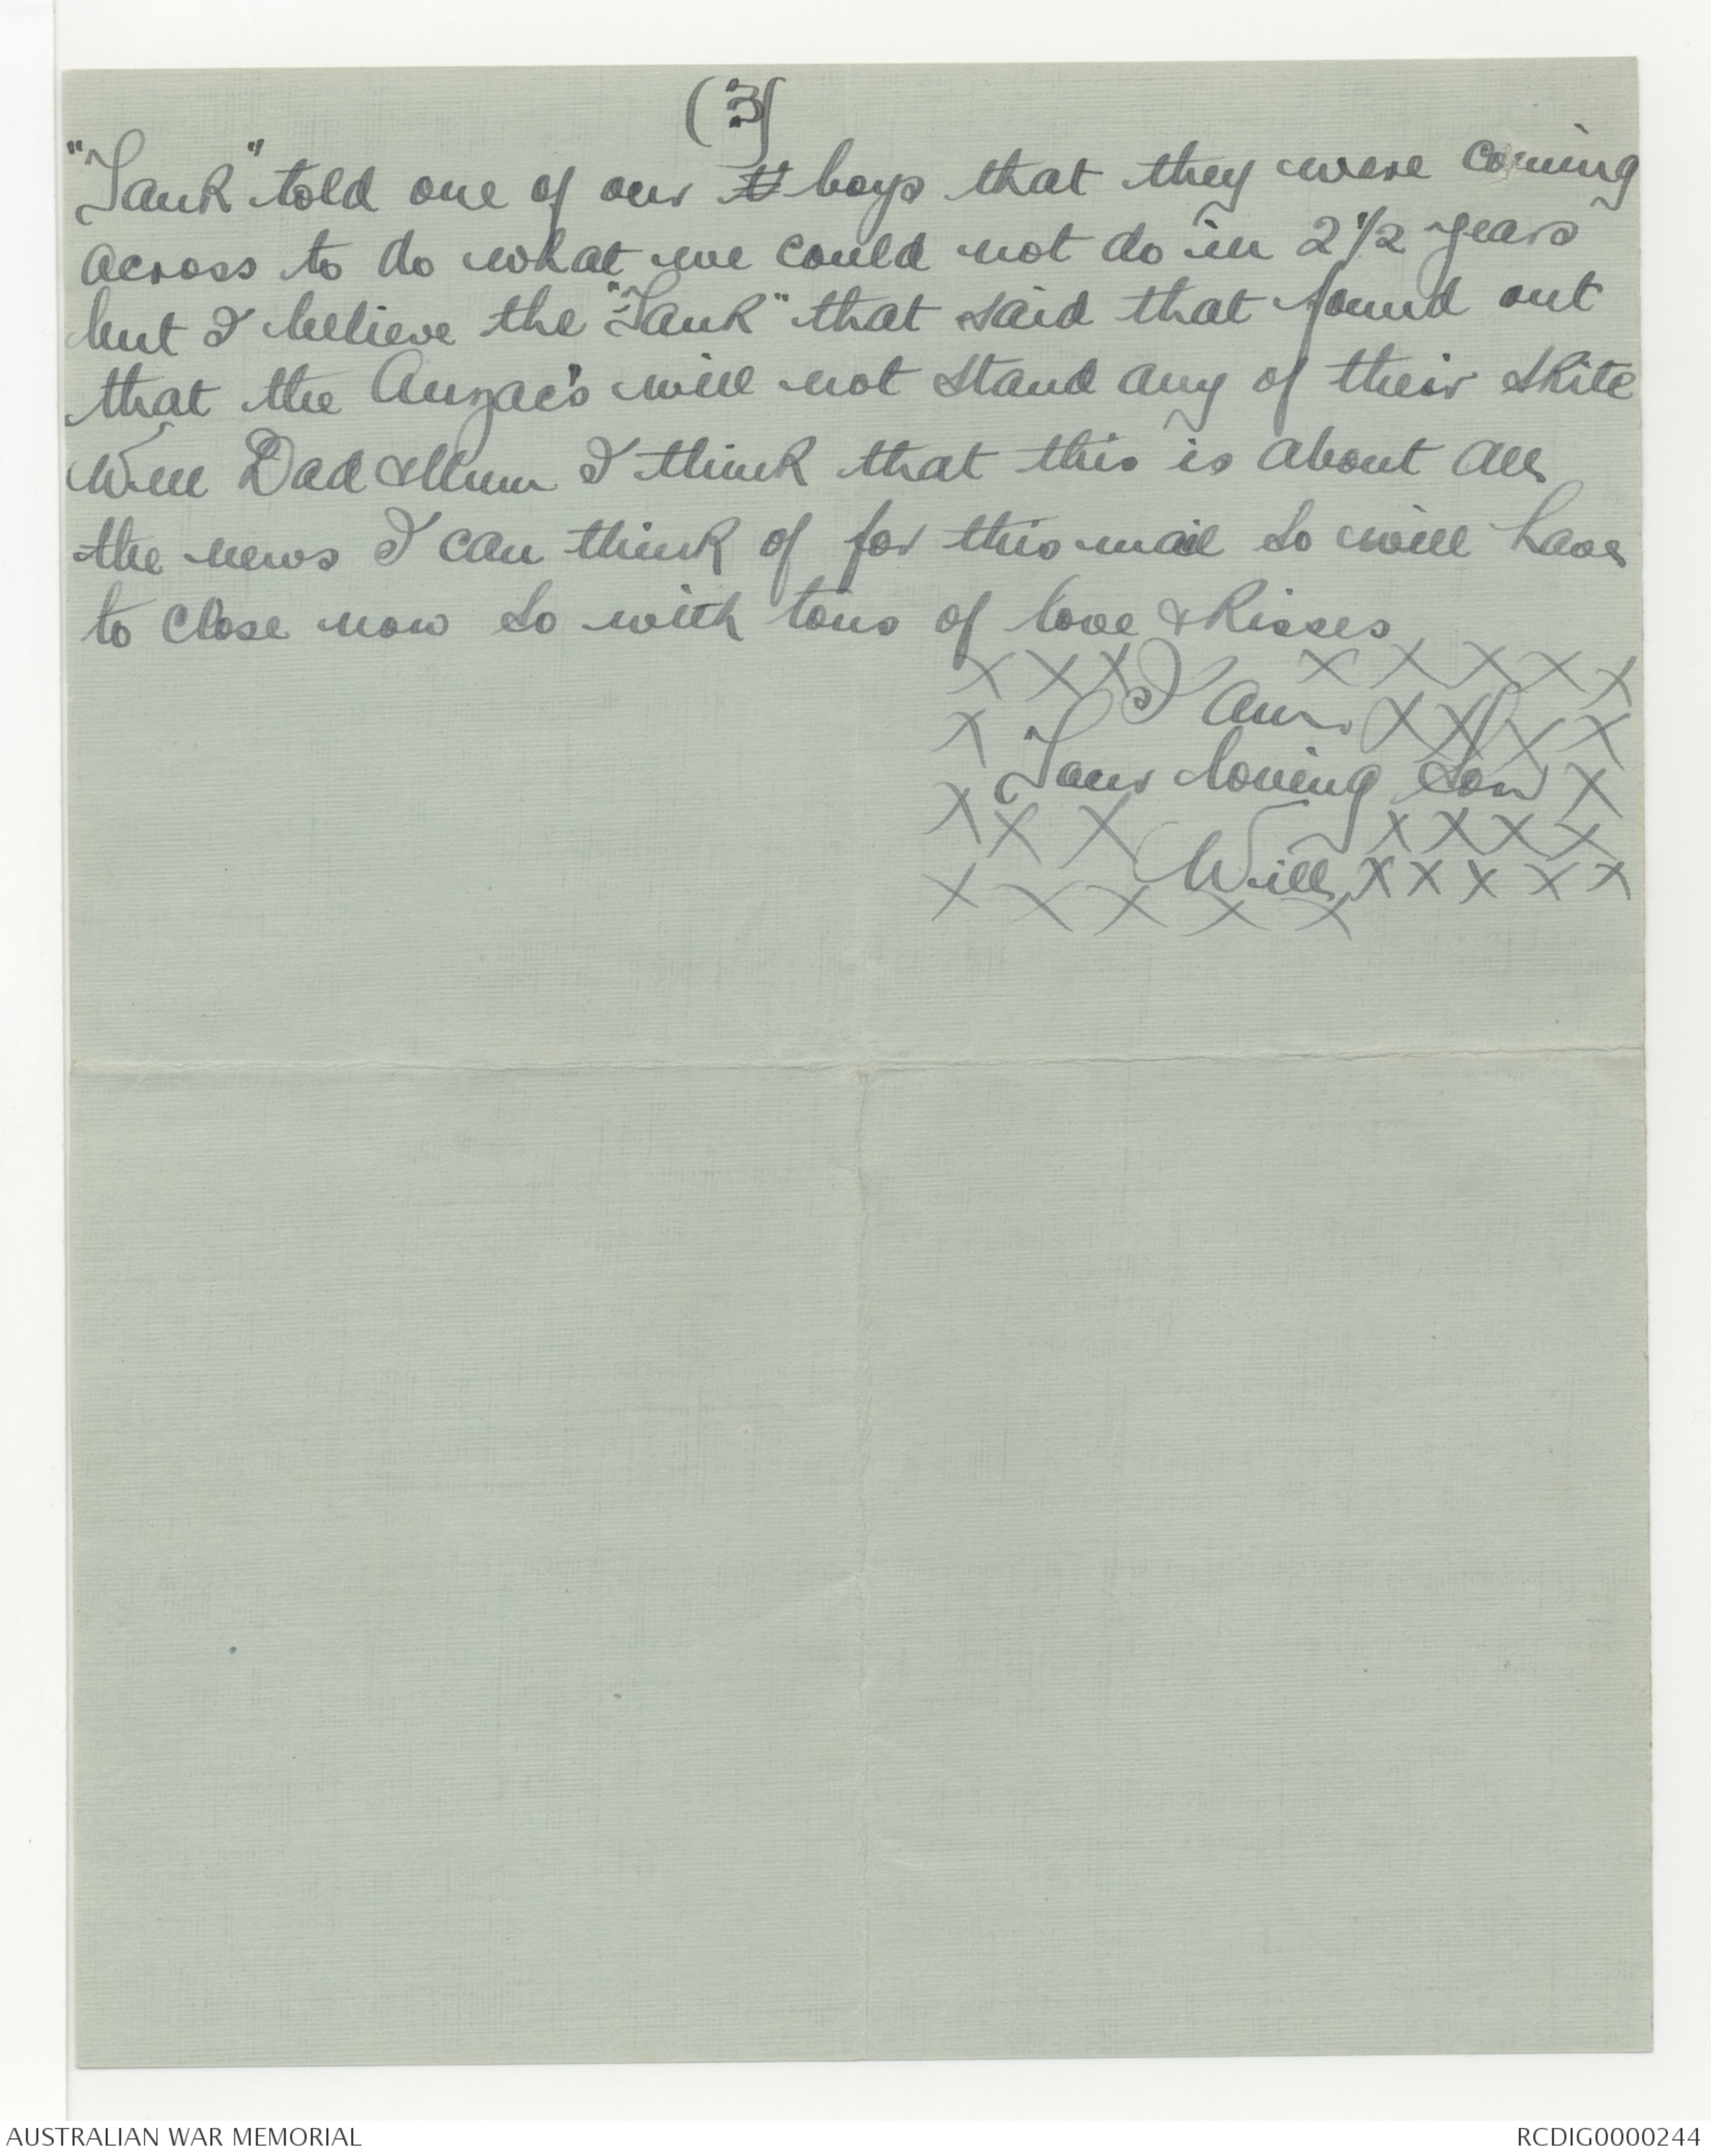 (3)
"Yank" told one of our boys that they were coming
across to do what we could not do in 2 1/2 years
but I believe the "Yank" that said that found out
that the Anzac's will not stand any of their skite
Well Dad & Mum I think that this is about all
the news I can think of for this mail so will have
to close now so with tons of love & kisses
x x x I x x x x x
x am x x x x
Your loving Son x
x x x x x x x
Will x x x x x
x x x x x
AUSTRALIAN WAR MEMORIAL
RCDIG0000244